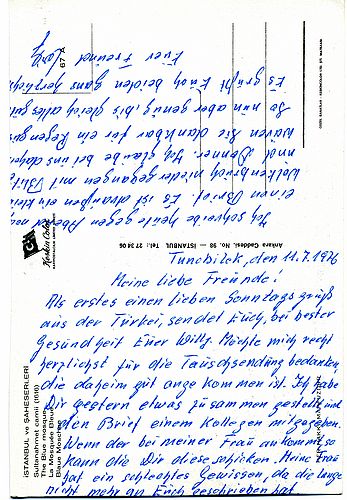 Tuncbilek, den 11.7.1976
Meine liebe Freunde!
Als erstes einen lieben Sonntagsgruß
aus der Türkei, sendet Euch, bei bester
Gesundheit Euer Willy. Möchte mich recht
herzlichst für die Tauschsendung bedanken,
die daheim gut angekommen ist. Ich habe
Dir gestern etwas zusammen gestellt und
den Brief einem Kollegen mitgegeben.
Wenn der bei meiner Frau ankommt so
kann die Dir diese schicken. Meine Frau
hat ein schlechtes Gewissen, da die lange
nicht mehr an Euch geschrieben hat.
Ich schreibe heute gegen Abend noch
einen Brief. Es ist draußen ein klein
Wolkenbruch niedergegangen mit Blitz
und Donner. Ich glaube bei uns daheim
wären Sie dankbar für ein Regen
So nun aber genug, bis gleich alles gute
Es grüßt Euch beiden ganz herzlich
Euer Freund
67 A
Keskin Color
Ankara Caddesi, No. 98 — İSTANBUL
İSTANBUL ve ŞAHESERLERİ
Sultanahmet camii (1616)
The Blue mosque
La Mosquée Bleue
Blaue Moschee